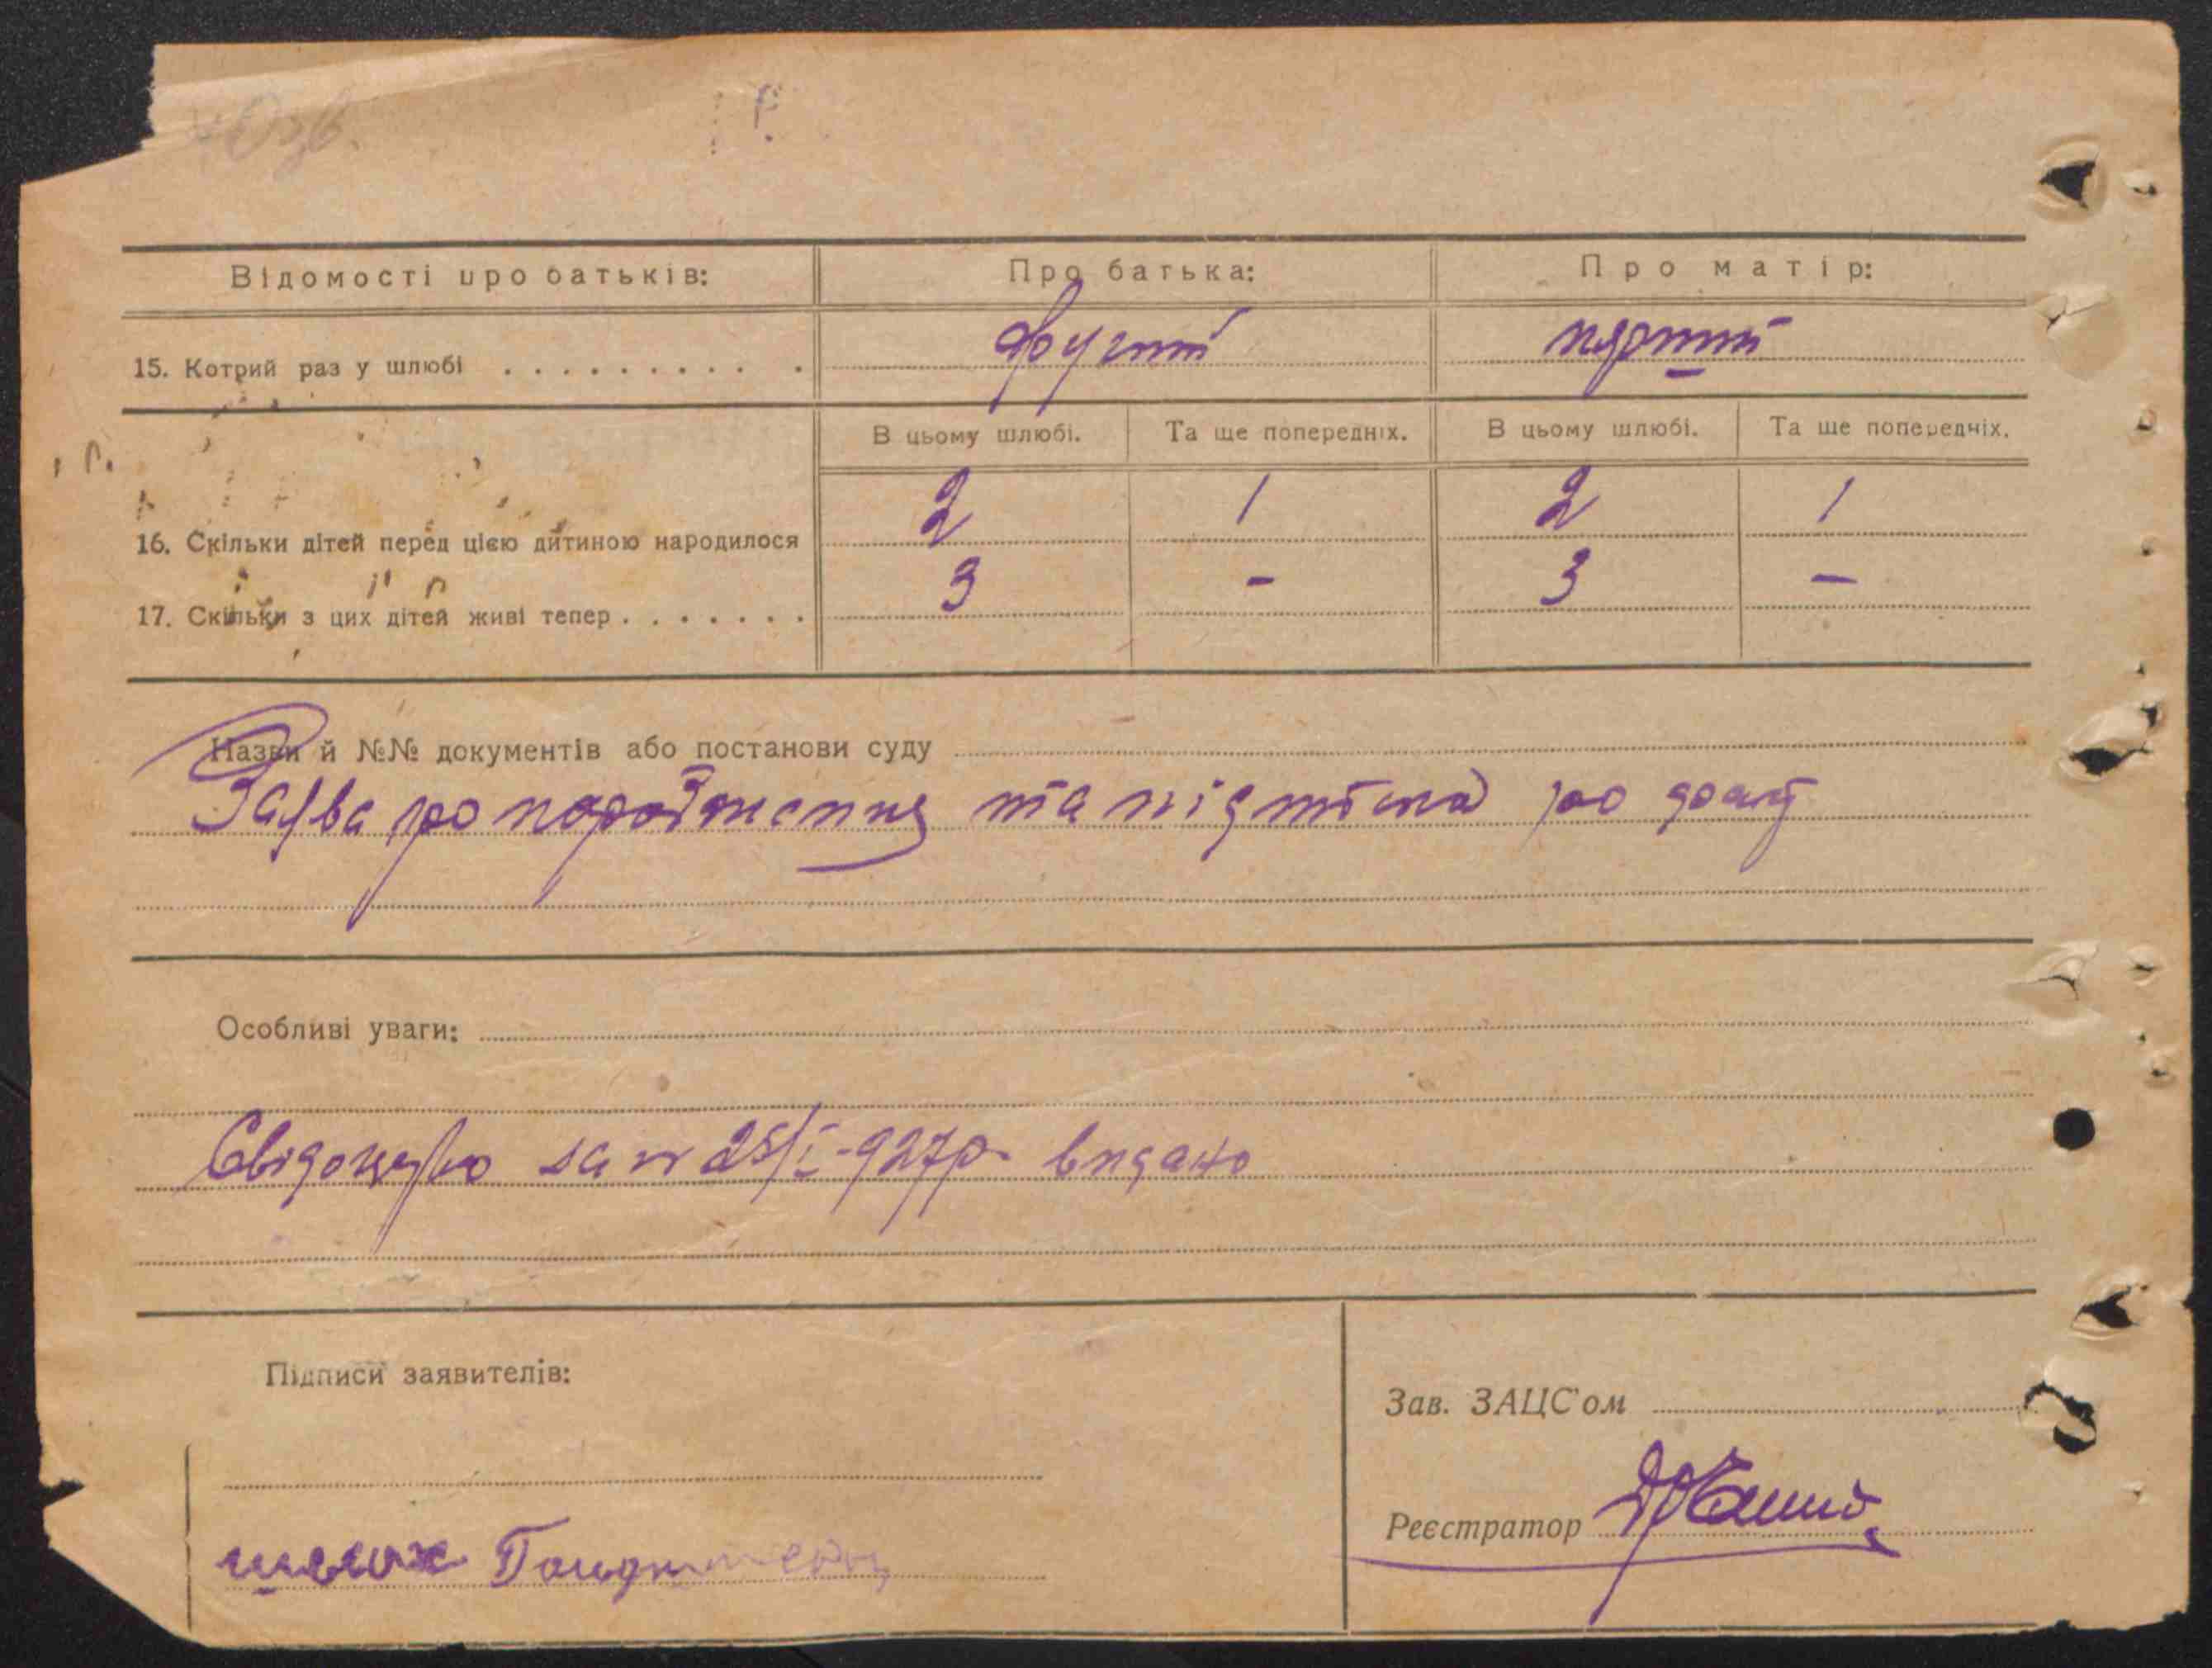 Відомості про батьків: Про батька: Про матір:
15. Котрий раз у шлюбі . . . . . . . . . . другий
В цьому шлюбі. Та ще попередніх. В цьому шлюбі. Та ще попередніх.
16. Скільки дітей перед цією дитиною народилося 2 1 2 1
17. Скільки з цих дітей живі тепер . . . . . . . 3 - 3 -
Назви й №№ документів або постанови суду
Заява про народження та
Особливі уваги:
за № 25/I-927р. видано
Підписи заявителів:
Зав. ЗАЦС'ом
Реєстратор